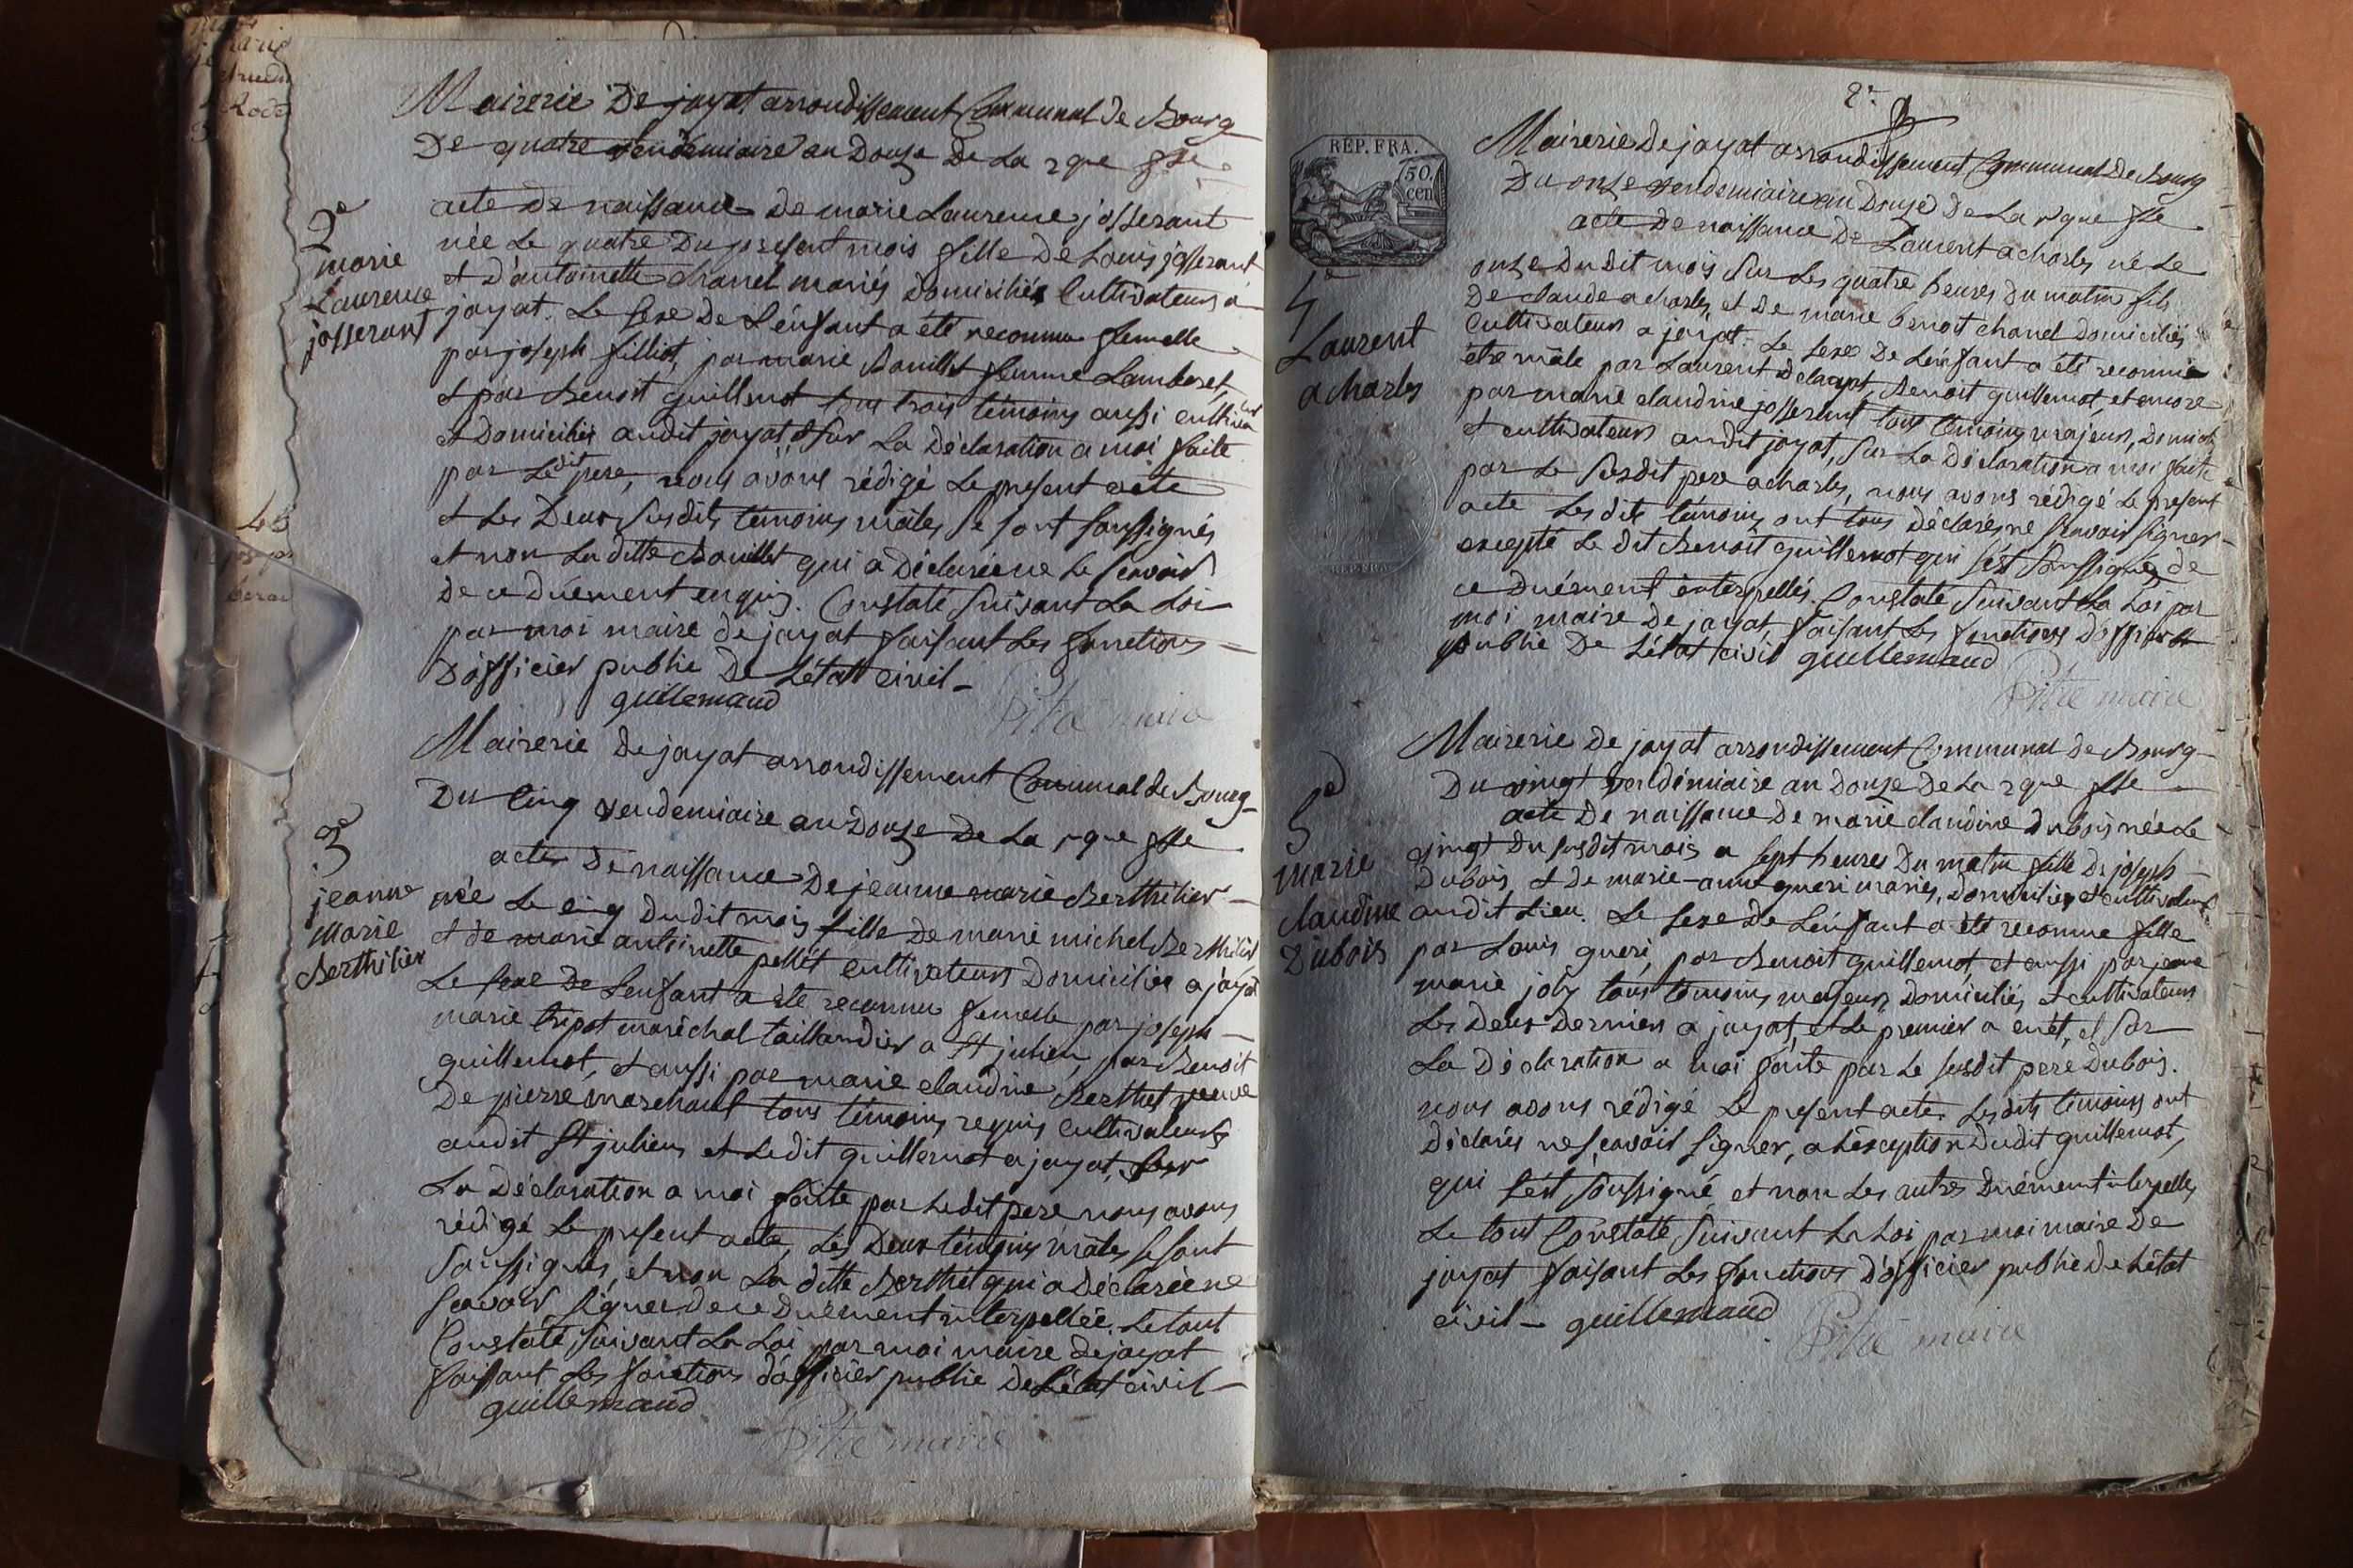 Mairerie De jayat arrondissement Communal de Bourg
De quatre vendémiaire an Douze De La rque fse
2e
marie
Laurence
josserant
acte de naissance De marie Laurence josserant
née Le quatre Du present mois fille De Louis josserant
et d'antoinette chanel mariés domiciliés Cultivateurs a
jayat. Le sexe De L'énfant a été reconnu femelle
par joseph filliot, par marie Bouillet femme Lamberet,
et par Benoit guillemot tous trois témoins aussi cultivateurs
et Domiciliés audit jayat & sur La Déclaration a moi faite
par Le dit pere, nous avons rédigé Le present acte
et Les Deux susdits témoins mâles se sont soussignés
et non La ditte Bouillet qui a Déclarée ne Le scavoir
De ce Duement enquis. Constaté suivant La Loi
par moi maire de jayat faisant Les fonctions
D'officier public De L'état civil
guillemaud
Pitre maire
Mairerie De jayat arrondissement Communal de Bourg
Du Cinq vendemiaire an Douze De La rque fse
3e
jeanne
marie
Berthilier
acte De naissance De jeanne marie Berthilier
née Le cinq Dudit mois fille De marie michel Berthilier
et de marie antoinette pellét cultivateurs Domiciliés a jayat
Le sexe De Lenfant a été reconnu femelle par joseph
marie tripot maréchal taillandier a St julien, par Benoit
guillemot, et aussi par marie claudine Berthet veuve
De pierre marechal tous témoins requis cultivateurs
audit St julien et Ledit guillemot a jayat, sur
La Déclaration a moi faite par Ledit pere nous avons
rédigé Le present acte, Les Deux témoins mâles se sont
soussignés, et non La ditte Berthét qui a Déclarée ne
scavoir signer De ce Duement interpellée. Le tout
Constaté suivant La Loi par moi maire de jayat
faisant Les fonctions d'officier public De L'état civil
guillemaud
Pitre maire
2e
REP. FRA.
50.
cen
Mairerie De jayat arrondissement Communal De Bourg
Du onze vendemiaire an Douze De La rque fse
4e
Laurent
acharles
acte De naissance De Laurent acharles né Le
onze Dudit mois sur Les quatre heures Du matin fils
De claude acharles, et De marie benoit chanel Domiciliés
Cultivateurs a jayat. Le sexe De Lénfant a été reconnu
être mâle par Laurent Benoit guillemot, et encore
par marie claudine josserant tous témoins majeurs,
et cultivateurs audit jayat, sur La Déclaration a moi faite
par Le susdit pere acharles, nous avons rédigé Le present
acte Les dits témoins ont tous déclarés ne scavoir signer
excepté Le dit Benoit guillemot qui s'est soussigné, de
ce Duément interpellés. Constaté suivant La Loi par
moi maire De jayat faisant Les fonctions D'officier
public De L'état civil guillemaud
Pitre maire
REP. FRA
Mairerie De jayat arrondissement Communal De Bourg
Du vingt vendémiaire an Douze De La rque fse
5e
marie
claudine
Dubois
acte De naissance De marie claudine Dubois née Le
vingt Du susdit mois a sept heures Du matin fille De joseph
Dubois, et de marie-anne gueri mariés, domiciliés et cultivateurs
audit Lieu. Le sexe De Lénfant a été reconnu fille
par Louis gueri, par Benoit guillemot et aussi par jeane
marie joly tous témoins majeurs Domiciliés et cultivateurs
Les Deux Derniers a jayat, et Le premier a cuet, et sur
La Déclaration a moi faite par Le susdit pere Dubois.
nous avons rédigé Le present acte. Lesdits témoins ont
Déclarés ne scavoir signer, a L'exception Dudit guillemot,
qui s'est soussigné et non Les autres Duément interpellés
Le tout Constaté suivant La Loi par moi maire De
jayat faisant Les fonctions D'officier public De L'état
civil guillemaud
Pitre maire